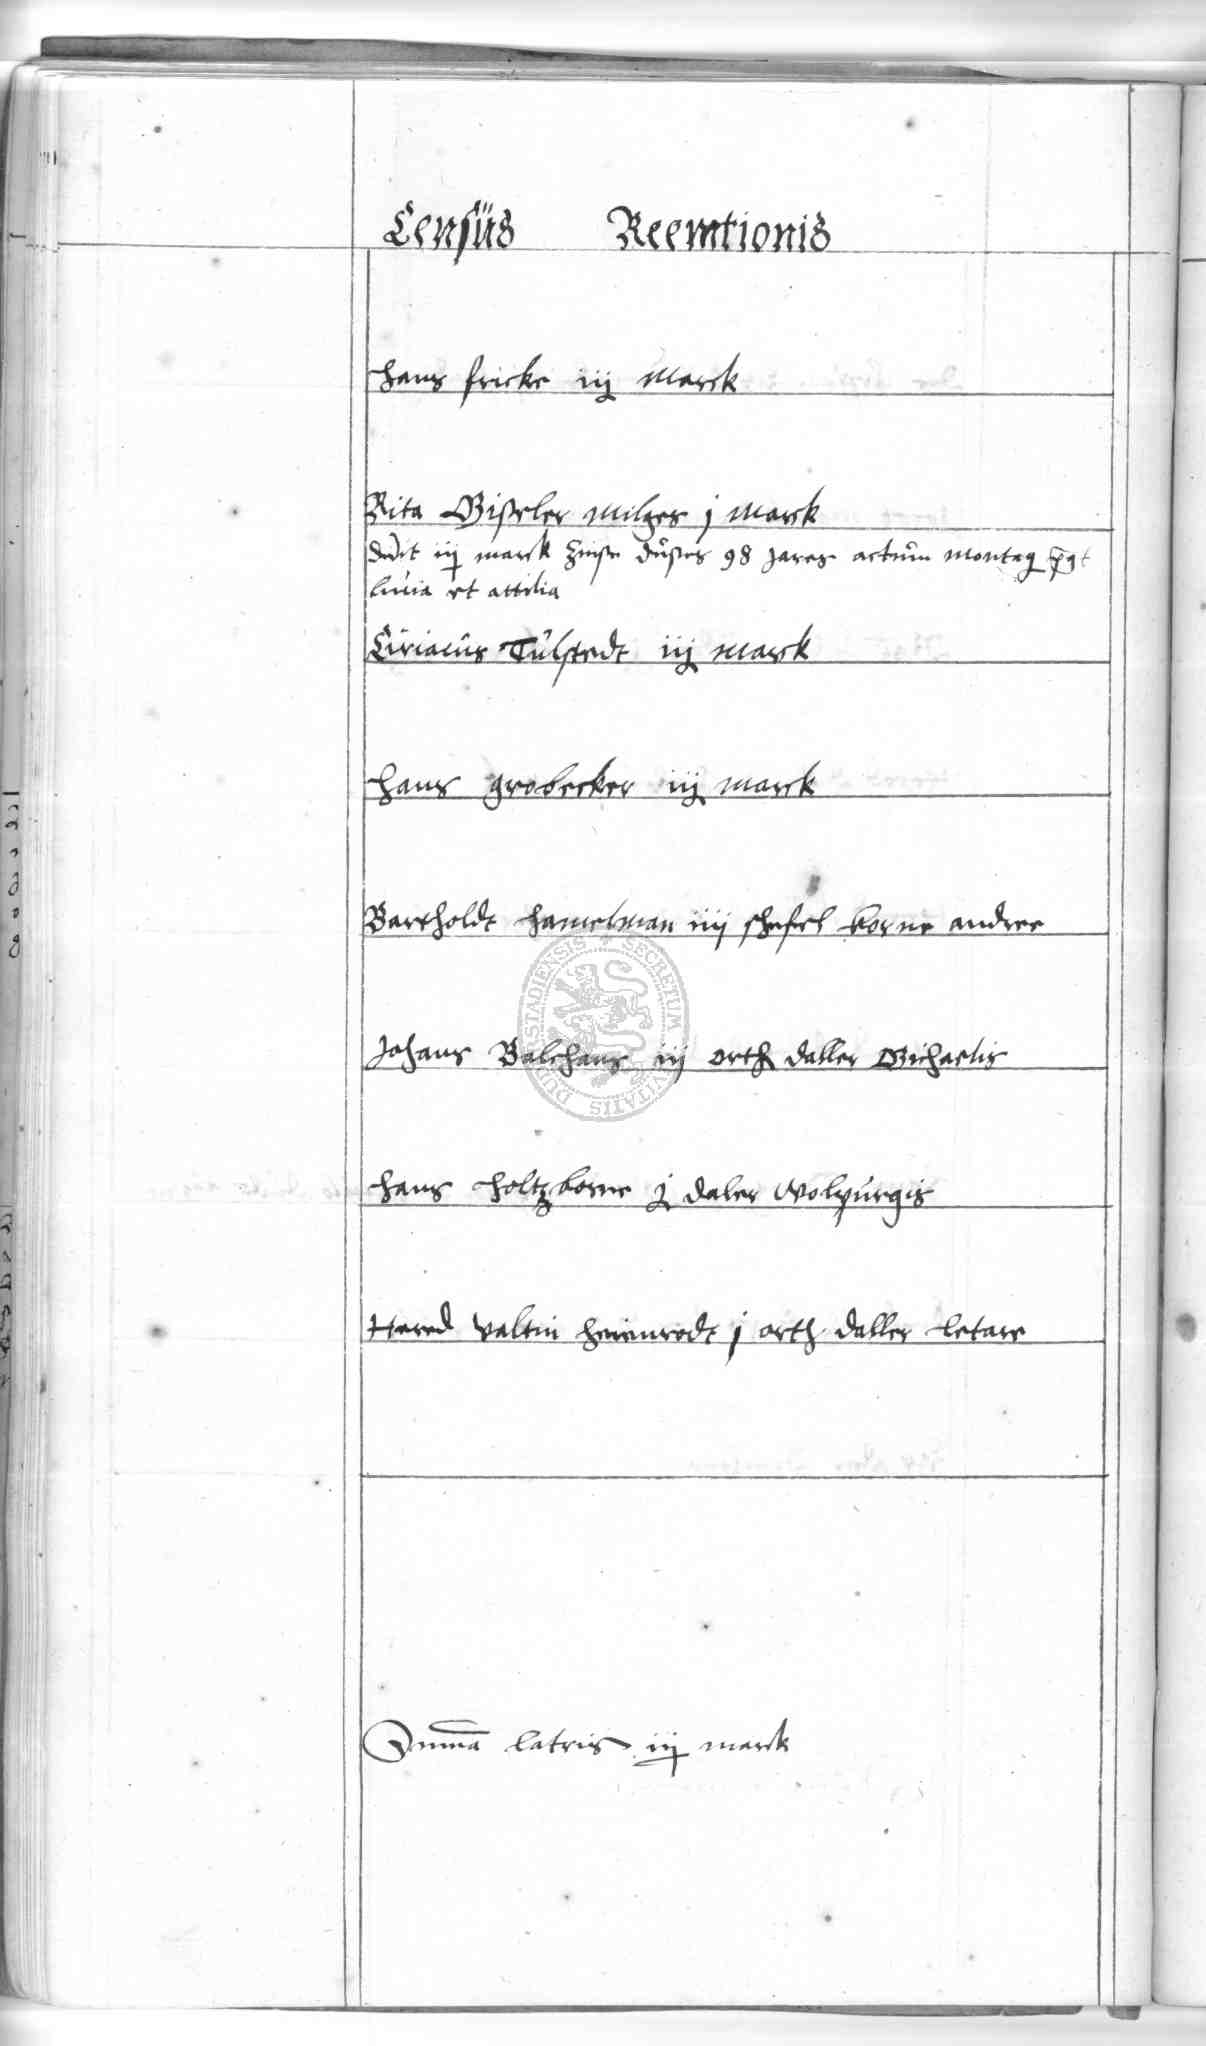 Censüs Reemtionis
hans fricke iij Marck
Rita Gißeler Milges j Marck
dedit iij marck Zinse düßes 98 Jares actum Montag post
lucia et attilia
Ciriacus Tulstedt iij Marck
hans grobecker iij marck
Bartholdt hamelman iiij schefel korne andree
Johans Balchans iij orth daller Michaelis
hans holtzborne j daler Wolpurgis
Hered valtin heienrodt j orth daller letare
Summa latris iij marck
SECRETUM CIVITATIS DUDERSTADIENSIS